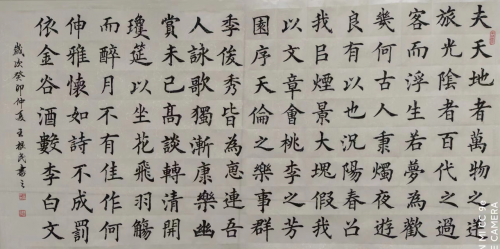 夫天地者萬物之逆
旅光陰者百代之過
客而浮生若夢為歡
幾何古人秉燭夜遊
良有以也況陽春召
我㠯煙景大塊假我
以文章會桃李之芳
園序天倫之樂事群
季俊秀皆為惠連吾
人詠歌獨慚康樂幽
賞未已高談轉清開
瓊筵以坐花飛羽觴
而醉月不有佳作何
伸雅懷如詩不成罰
依金谷酒數李白文
歲次癸卯仲夏王民書之
MI CC 9e
E CAMERA